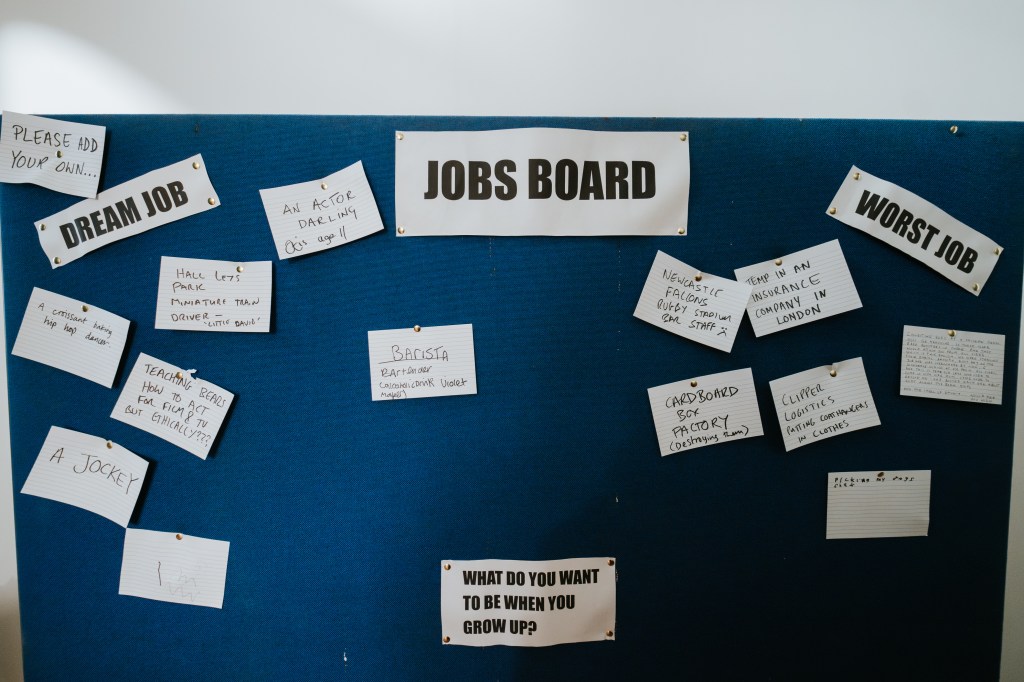 PLEASE ADD
YOUR OWN...
DREAM JOB
AN ACTOR
DARLING
JOBS BOARD
WORST JOB
HALL LEYS
PARK
MINIATURE TRAIN
DRIVER –
"LITTLE DAVID"
A croissant baking
hip hop dancer
TEACHING BEARS
HOW TO ACT
FOR FILM & TV
BUT ETHICALLY???
A JOCKEY
BARISTA
Bartender
NEWCASTLE
FALCONS
RUGBY STADIUM
BAR STAFF
TEMP IN AN
INSURANCE
COMPANY IN
LONDON
CARDBOARD
BOX
FACTORY
(Destroying them)
CLIPPER
LOGISTICS
PUTTING COATHANGERS
IN CLOTHES
WHAT DO YOU WANT
TO BE WHEN YOU
GROW UP?